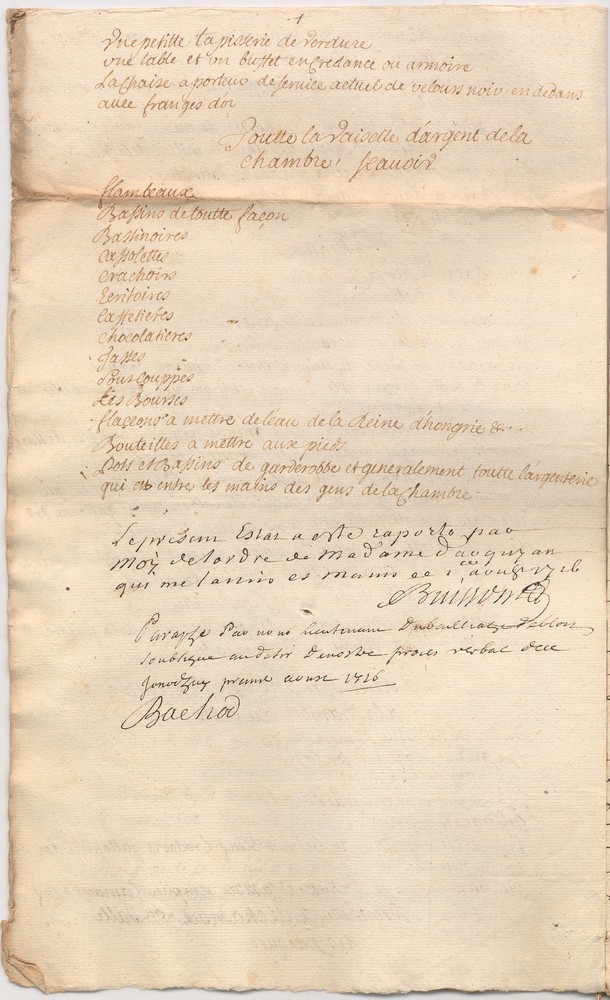 4
Une petitte tapisserie de Verdure
une table et un buffet en Credance ou armoire
La chaise a porteur de service actuel de velours noir en dedans
avec franges d'or
Toutte la Vaiselle d'argent de la
chambre, sçavoir
flambeaux
Bassins de toutte façon
Bassinoires
Cassolettes
Crachoirs
Ecritoires
Caffetieres
chocolatieres
Tasses
Souscouppes
Les Bourses
flaccons a mettre de l'eau de la Reine d'hongrie &c.
Bouteilles a mettre aux pieds
Pots et Bassins de garderobbe et generalement toutte l'argenterie
qui est entre les mains des gens de la Chambre.
Le present Estat a esté raporté par
Moy de lordre de Mad'ame
qui me la mis es mains ce 1er aoust 1716
Paraffé Par nous lieutenant
au desir De nostre proces verbal de ce
Jourdhuy premier aoust 1716
Bachod